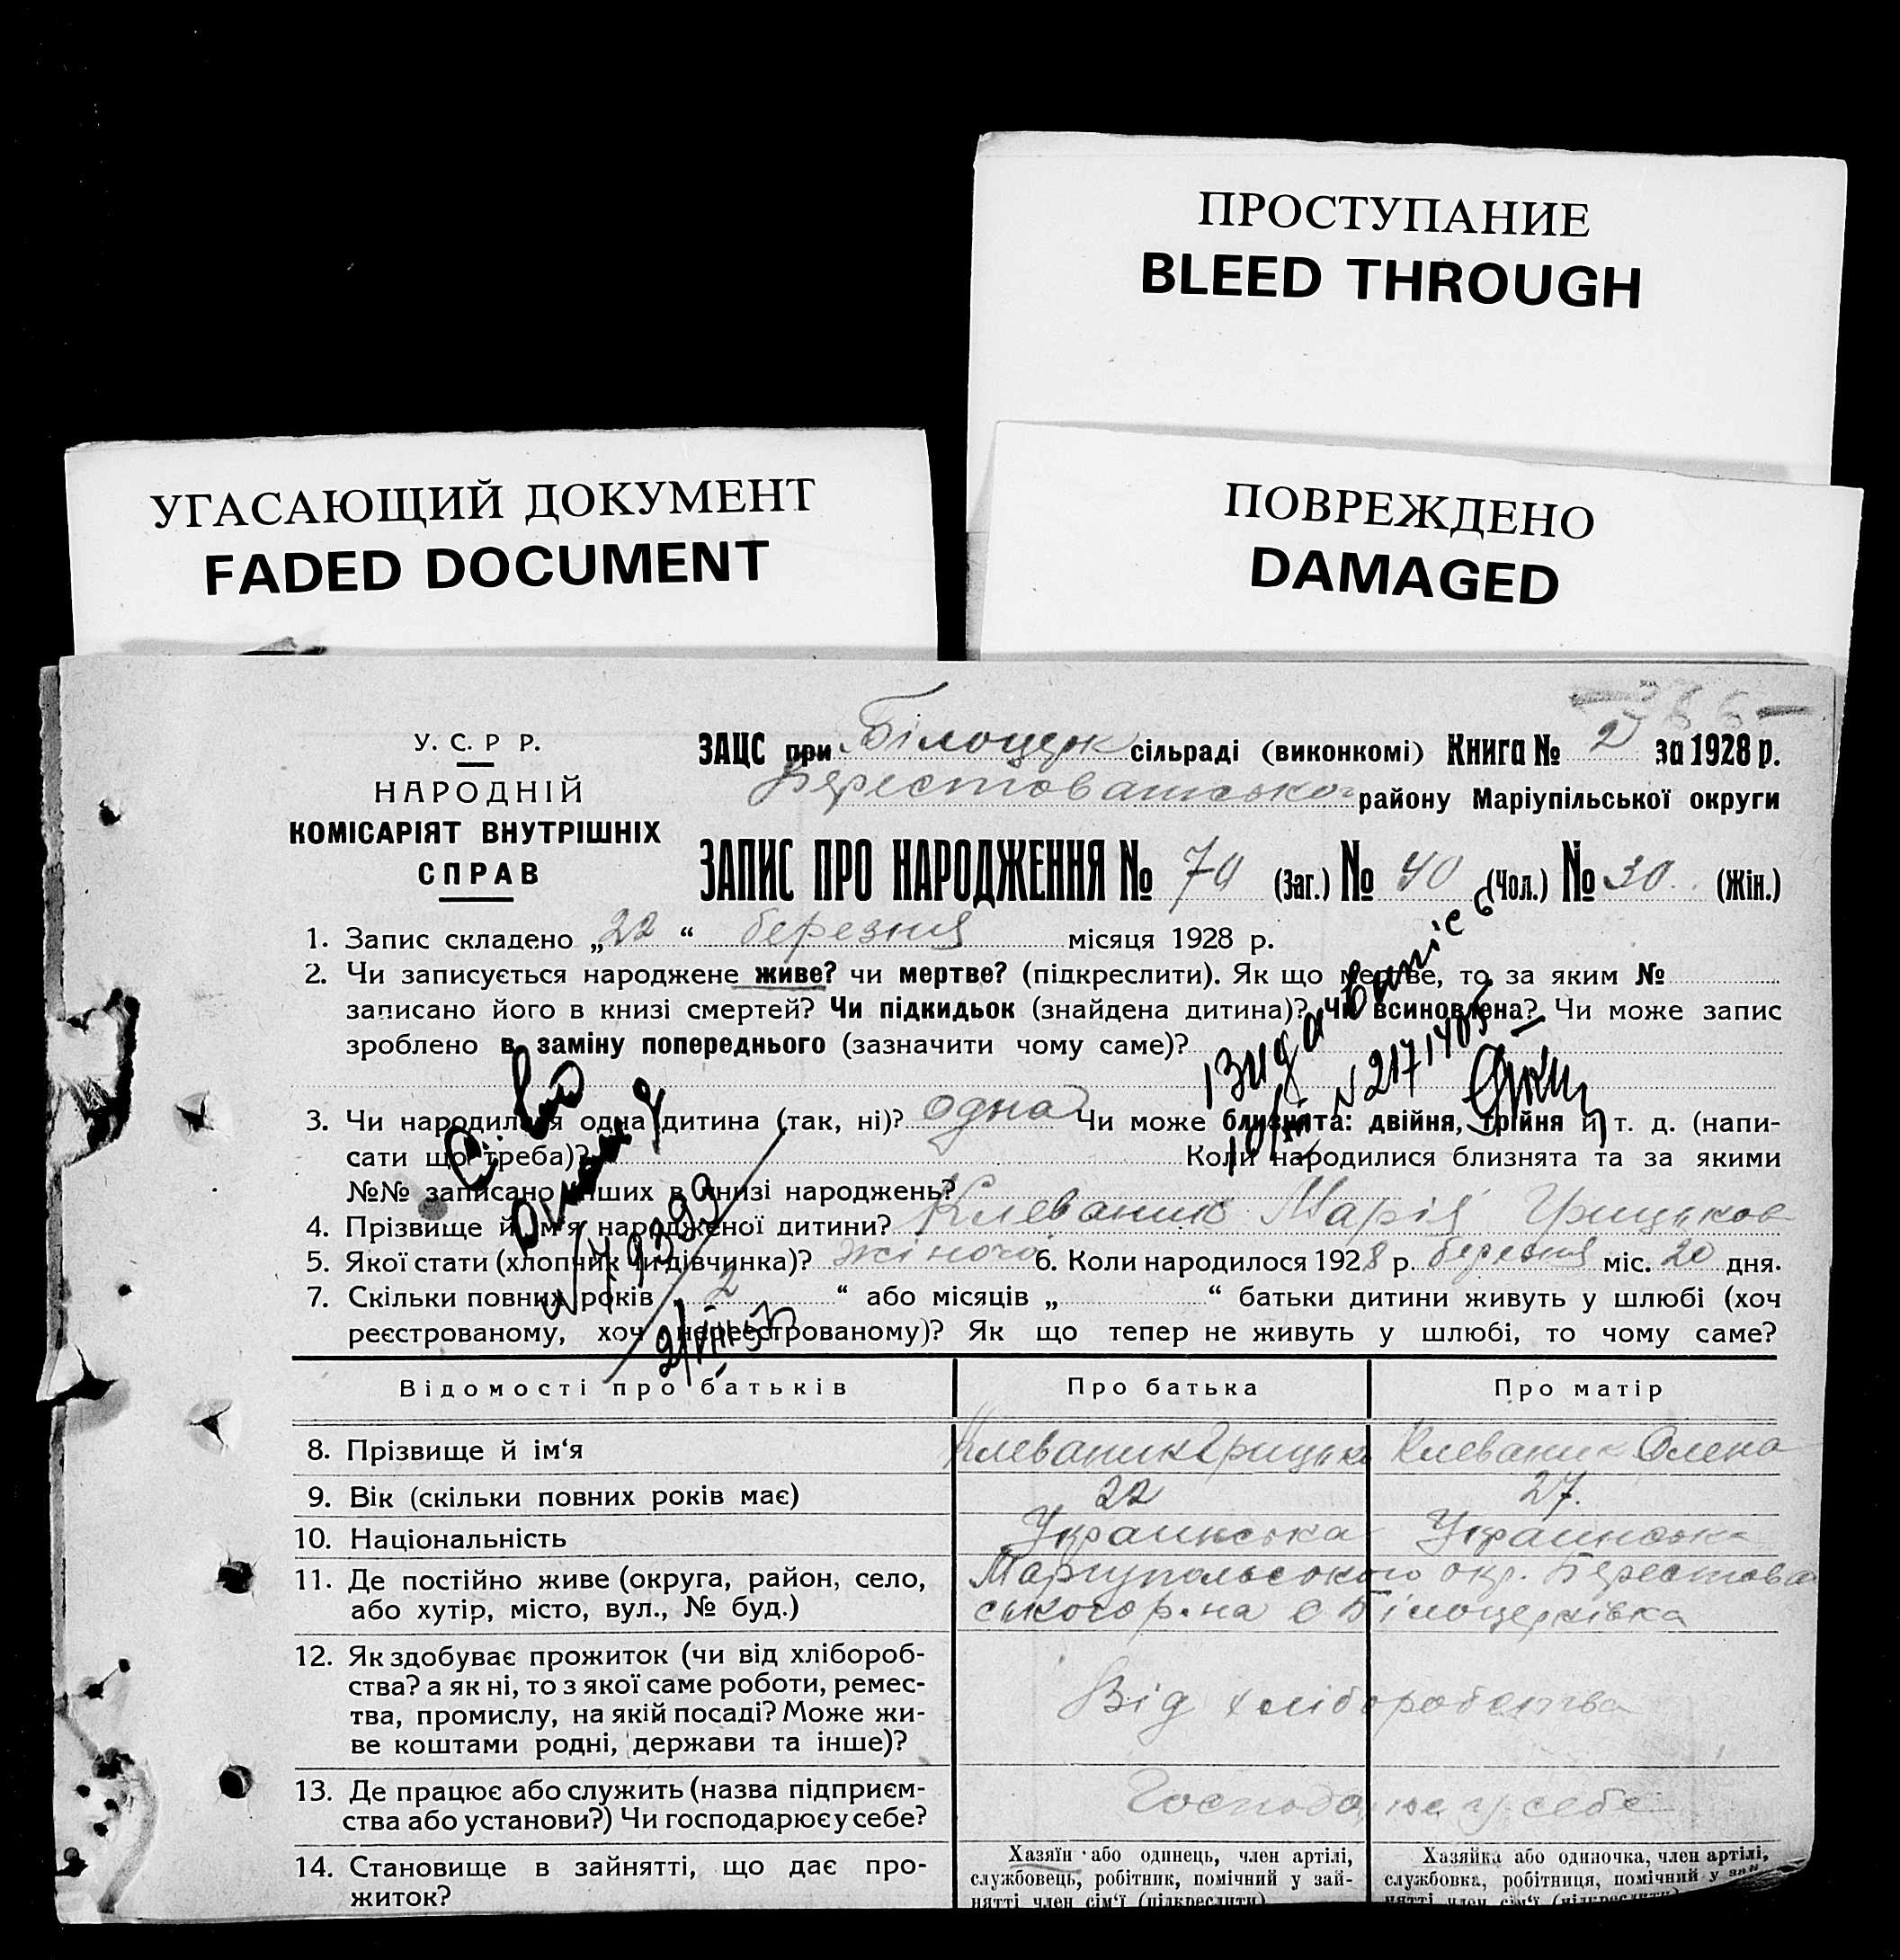 ПРОСТУПАНИЕ
BLEED THROUGH
УГАСАЮЩИЙ ДОКУМЕНТ
FADED DOCUMENT
ПОВРЕЖДЕНО
DAMAGED
У. С. Р Р.
НАРОДНІЙ
КОМІСАРІЯТ ВНУТРІШНІХ
СПРАВ
ЗАЦС при Білоцерк сільраді (виконкомі) Книга № 2 за 1928 р.
району Маріупільської округи
ЗАПИС ПРО НАРОДЖЕННЯ № 70 (Заг.) № 40 (Чол.) № 30 (Жін.)
1. Запис складено „22 “ березня місяця 1928 р.
2. Чи записується народжене живе? чи мертве? (підкреслити). Як що мертве, то за яким №
записано його в книзі смертей? Чи підкидьок (знайдена дитина)? Чи всиновлена? Чи може запис
зроблено в заміну попереднього (зазначити чому саме)?
3. Чи народилася одна дитина (так, ні)? одна Чи може близнята: двійня, трійня й т. д. (напи-
сати що треба)? Коли народилися близнята та за якими
№№ записано інших в книзі народжень?
4. Прізвище й ім'я народженої дитини? Клеваник Марія Грицьков
5. Якої стати (хлопчик чи дівчинка)? жіночої 6. Коли народилося 1928 р. березня міс. 20 дня.
7. Скільки повних років 2 “ або місяців „ “ батьки дитини живуть у шлюбі (хоч
реєстрованому, хоч нереєстрованому)? Як що тепер не живуть у шлюбі, то чому саме?
Відомості про батьків Про батька Про матір
8. Прізвище й ім‘я Клеваник Грицько Клеваник Олена
9. Вік (скільки повних років має) 22 27.
10. Національність Украинська Украинська
11. Де постійно живе (округа, район, село, Маріупольського окр. Берестова
або хутір, місто, вул., № буд.) ського р-на с Білоцерківка
12. Як здобуває прожиток (чи від хлібороб-
ства? а як ні, то з якої саме роботи, ремес-
тва, промислу, на якій посаді? Може жи-
ве коштами родні, держави та інше)?
Від хліборобства
13. Де працює або служить (назва підприєм-
ства або установи?) Чи господарює у себе?
Господарює у себе
14. Становище в зайнятті, що дає про-
житок?
Хазяїн або одинець, член артілі,
службовець, робітник, помічний у зай-
нятті член сім‘ї (підкреслити)
Хазяйка або одиночка, член артілі,
службовка, робітниця, помічний у зай
нятті член сім‘ї (підкреслити)